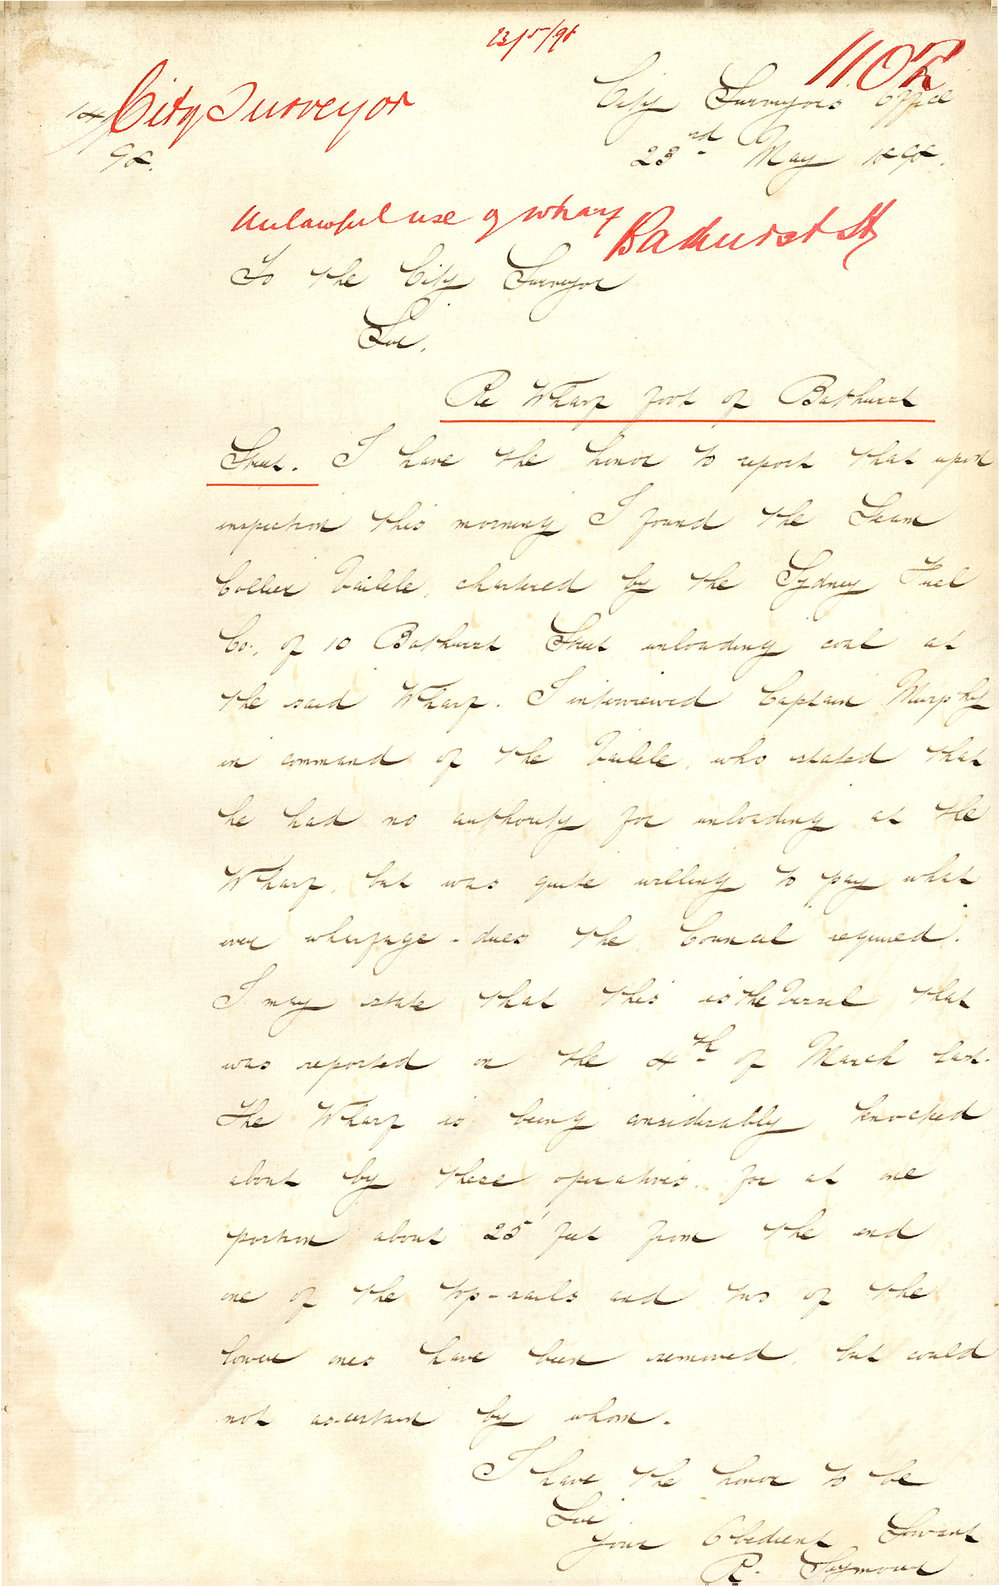 23/5/98
City Surveyor
98.
City Surveyors Office
23rd May 1898.
Unlawful use of wharf
Bathurst St
To the City Surveyor
Sir,
Re Wharf foot of Bathurst
Street. I have the honor to report that upon
inspection this morning I found the Steam
Collier Vailele, chartered by the Sydney Fuel
Co., of 10 Bathurst Street unloading coal at
the said Wharf. I interviewed Captain Murphy
in command of the Vailele, who stated that
he had no authority for unloading at the
Wharf, but was quite willing to pay what
ever wharfage-dues the Council required.
I may state that this is the Vessel that
was reported on the 4th of March last.
The Wharf is being considerably knocked
about by these operations, for at one
portion about 25 feet from the end
one of the top-rails and two of the
lower ones have been removed, but could
not ascertain by whom.
I have the honor to be
Sir
Your Obedient Servant
R. Seymour